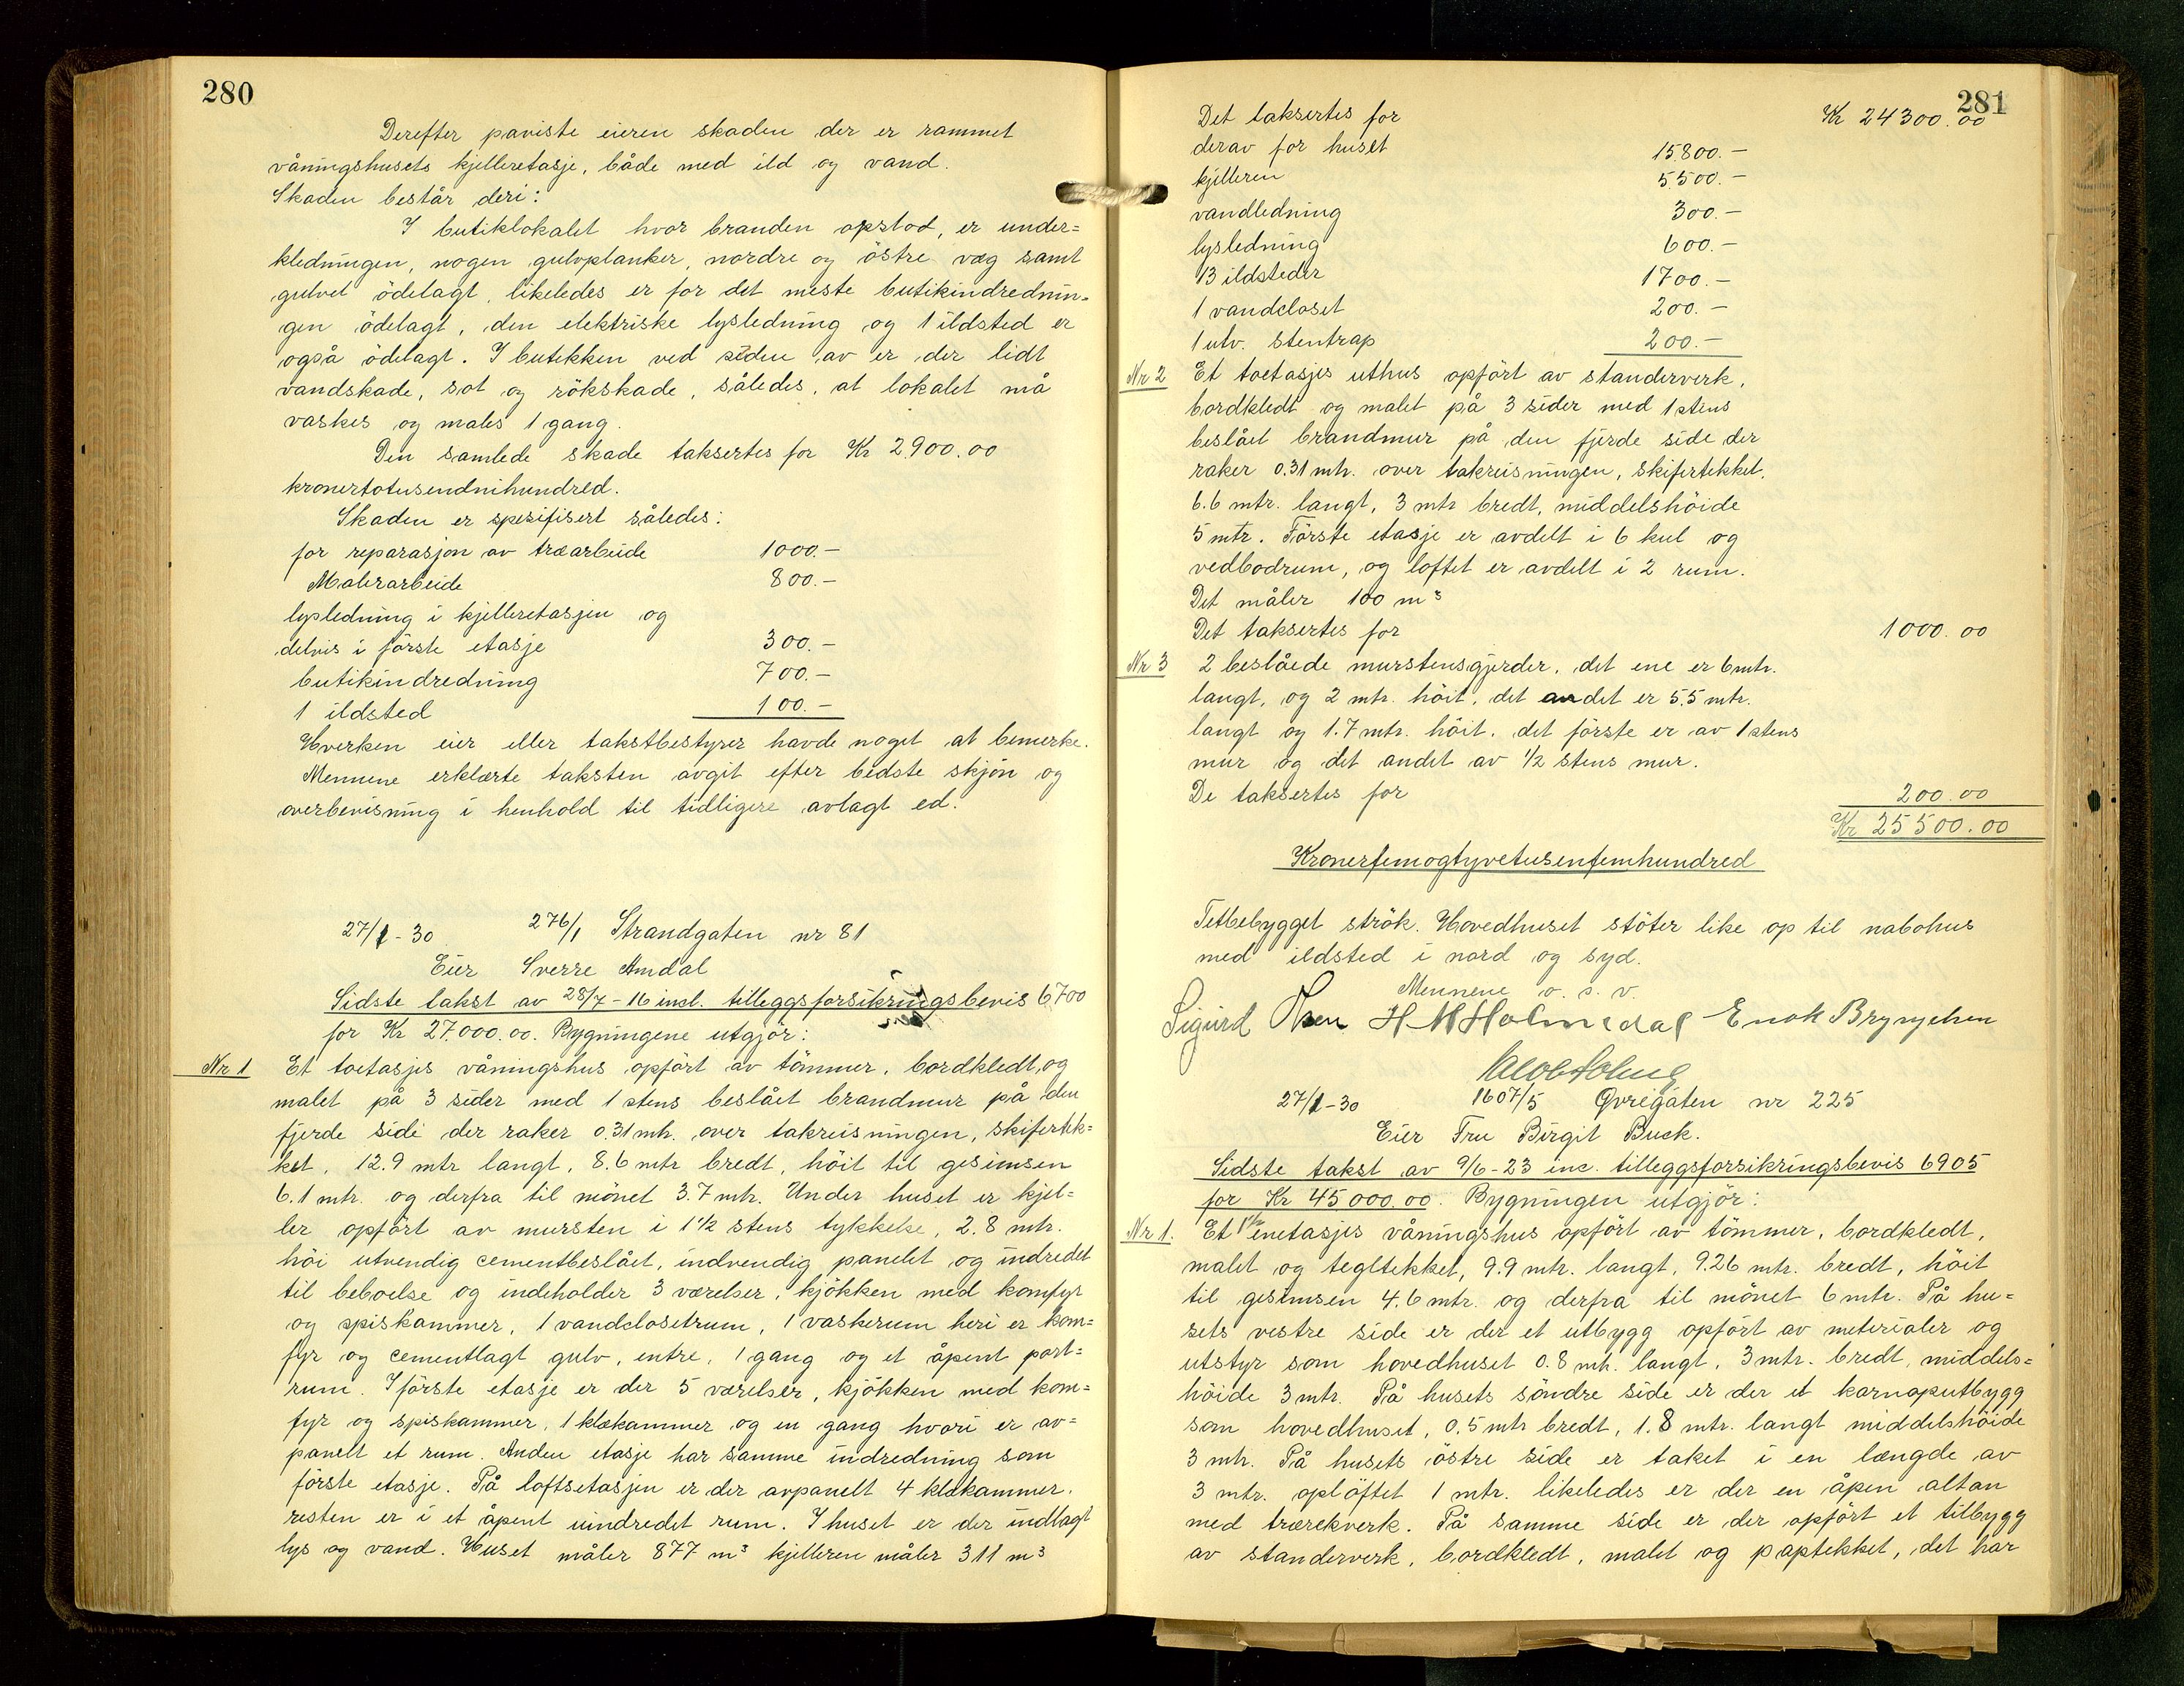 280
Derefter paviste eieren skaden der er rammet
våningshusets kjelleretasje, både med ild og vand.
Skaden består deri:
I butiklokalet hvor branden opstod, er under=
kledningen, nogen gulvplanker, nordre og östre væg samt
gulvet ödelagt, likeledes er for det meste butikindrednin=
gen ödelagt, den elektriske lysledning og 1 ildsted er
også ödelagt. I butikken ved siden av er der lidt
vandskade, sot og rökskade, således, at lokalet må
vaskes og males 1 gang.
Den samlede skade taksertes for Kr 2900.00
kronertotusendnihundred.
Skaden er spesifisert således:
for reparasjon av træarbeide 1000.-
Malerarbeide 800.-
lysledning i kjelleretasjen og
delvis i förste etasje 300.-
butikindredning 700.-
1 ildsted 100.-
Hverken eier eller takstbestyrer havde noget at bemerke.
Mennene erklærte taksten avgit efter bedste skjön og
overbevisning i henhold til tidligere avlagt ed.
27/1-30 276/1 Strandgaten nr 81
Eier Sverre Amdal
Sidste takst av 28/7-16 incl. tilleggsforsikringsbevis 6700
for Kr 27.000.00. Bygningene utgjör:
Nr 1 Et toetasjes våningshus opfört av tömmer, bordkledt, og
malet på 3 sider med 1 stens beslået brandmur på den
fjerde side der raker 0.31 mtr. over takreisningen, skifertek=
ket, 12.9 mtr langt, 8.6 mtr bredt, höit til gesimsen
6.1 mtr. og derfra til mönet 3.7 mtr. Under huset er kjel=
ler opfört av mursten i 1½ stens tykkelse, 2.8 mtr.
höi utvendig cementbeslået, indvendig panelet og indredet
til beboelse og indeholder 3 værelser, kjökken med komfyr
og spiskammer, 1 vandclosetrum, 1 vaskerum heri er kom=
fyr og cementlagt gulv, entre, 1 gang og et åpent port=
rum. I förste etasje er der 5 værelser, kjökken med kom=
fyr og spiskammer, 1 klækammer og en gang hvori er av=
panelt et rum. Anden etasje har samme indredning som
förste etasje. På loftsetasjen er der avpanelt 4 klækammer,
resten er i et åpent uindredet rum. I huset er der indlagt
lys og vand. Huset måler 877 m³ kjelleren måler 311 m³
281
Det taksertes for Kr 24300.00
derav for huset 15.800.-
kjelleren 5500.-
vandledning 300.-
lysledning 600.-
13 ildsteder 1700.-
1 vandcloset 200.-
1 utv. stentrap 200.-
Nr 2 Et toetasjes uthus opfört av standerverk,
bordkledt og malet på 3 sider med 1 stens
beslået brandmur på den fjerde side der
raker 0.31 mtr. over takreisningen, skifertekket,
6.6 mtr. langt, 3 mtr bredt, middelshöide
5 mtr. Förste etasje er avdelt i 6 kul og
vedbodrum, og loftet er avdelt i 2 rum.
Det måler 100 m³
Det taksertes for 1000.00
Nr 3 2 beslåede murstensgjerder, det ene er 6 mtr.
langt, og 2 mtr. höit, det andet er 5.5 mtr.
langt og 1.7 mtr. höit, det förste er av 1 stens
mur og det andet av ½ stens mur.
De taksertes for 200.00
Kr 25500.00
Kronerfemogtyvetusenfemhundred
Tetbebygget strök. Hovedhuset stöter like op til nabohus
med ildsted i nord og syd.
Mennene o. s. v.
Sigurd Olsen H M Holmedal Enok Brynjelsen
27/1-30 1607/5 Øvregaten nr 225
Eier Fru Birgit Buck.
Sidste takst av 9/6-23 inc. tilleggsforsikringsbevis 6905
for Kr 45000.00. Bygningen utgjör:
Nr 1. Et 1½ enetasjes våningshus opfört av tömmer, bordkledt,
malet og tegltekket, 9.9 mtr. langt, 9.26 mtr. bredt, höit
til gesimsen 4.6 mtr. og derfra til mönet 6 mtr. På hu=
sets vestre side er der et utbygg opfört av meterialer og
utstyr som hovedhuset 0.8 mtr. langt, 3 mtr. bredt, middels=
höide 3 mtr. På husets söndre side er der et karnaputbygg
som hovedhuset, 0.5 mtr bredt, 1.8 mtr. langt middelshöide
3 mtr. På husets östre side er taket i en længde av
3 mtr. oplöftet 1 mtr. likeledes er der en åpen altan
med trærekverk. På samme side er der opfört et tilbygg
av standerverk, bordkledt, malet og paptekket, det har